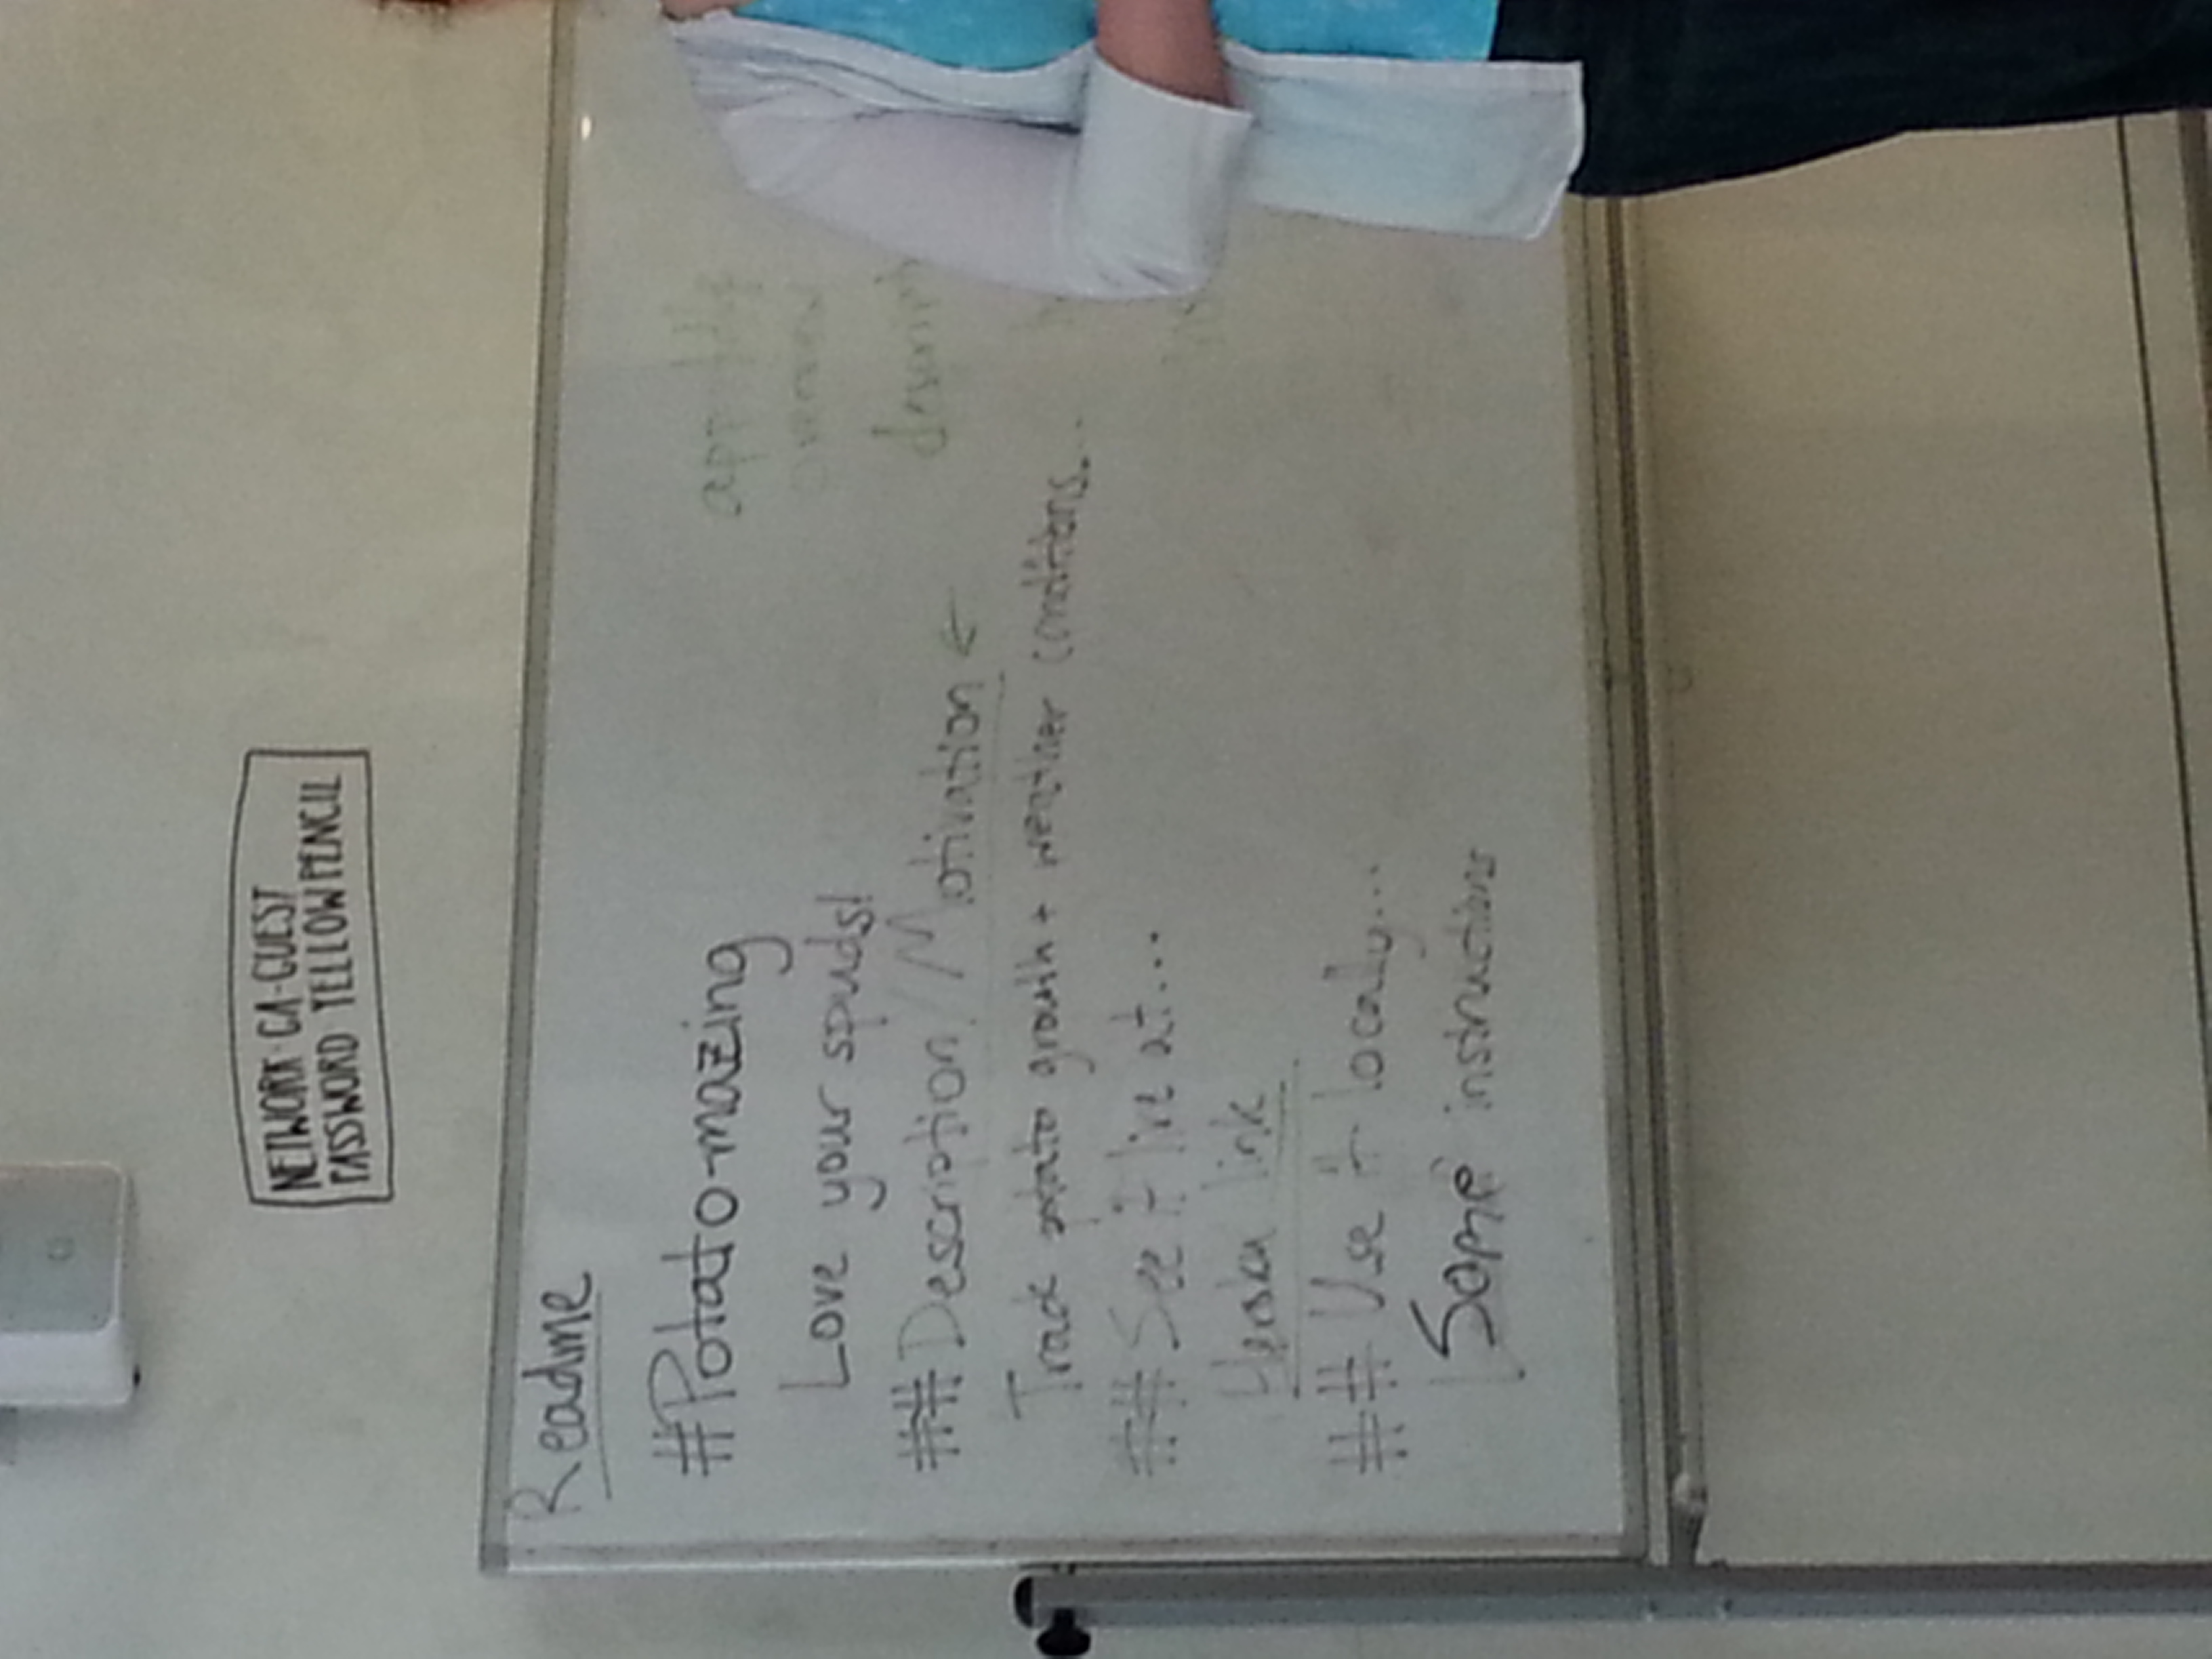 NETWORK CA-GUEST
PASSWORD YELLOWPENCIL
Readme
#Potato-mazing
Love your spuds!
##Description/Motivation ←
Track potato growth + weather conditions...
##See it live at...
Heroku link
## Use it locally...
Some instructions
app title
overview
descript